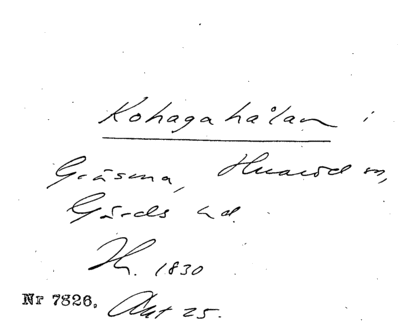 Kohagahålan i
Gräsma, Huaröd sn,
Gärds hd.
Th. 1830
Nr 7826. Akt 25.